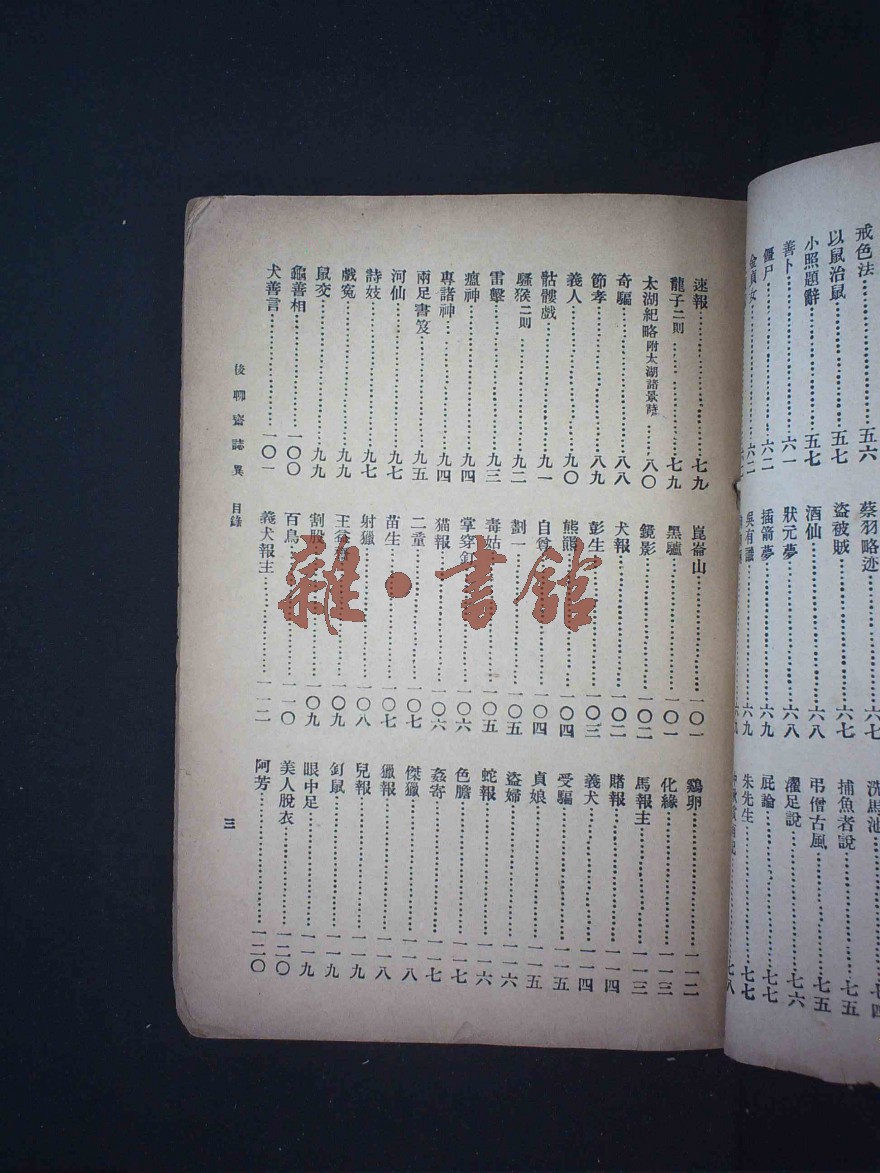 戒色法……五六
以鼠治鼠……五七
小照題辭……五七
善卜……六一
僵尸……六二
女……六二
蔡羽略迹……六七
盜被賊……六七
酒仙……六八
狀元夢……六八
插箭夢……六九
吳有讖……六九
洗馬池……七四
捕魚者說……七五
弔僧古風……七五
濯足說……七六
屁論……七七
朱先生……七七
七八
速報……七九
龍子二則……七九
太湖紀略附太湖諸景蹟……八〇
奇驅……八八
節孝……八九
義人……九〇
骷髏戲……九一
騷猴二則……九二
雷擊……九三
瘟神……九四
專諸神……九四
兩足書笈……九五
河仙……九七
詩妓……九七
戲寃……九九
鼠交……九九
龜善相……一〇〇
犬善言……一〇一
崑崙山……一〇一
黑驢……一〇一
鏡影……一〇二
犬報……一〇二
彭生……一〇三
熊……一〇四
自……一〇四
劃一……一〇五
毒姑……一〇五
掌穿釘……一〇六
猫報……一〇六
二童……一〇七
苗生……一〇七
射獵……一〇八
王……一〇九
割股……一〇九
百鳥……一一〇
義犬報主……一一二
鷄卵……一一二
化緣……一一三
馬報主……一一三
賭報……一一四
義犬……一一四
受驅……一一五
貞娘……一一五
盜婦……一一六
蛇報……一一六
色膽……一一七
姦寄……一一七
傑獵……一一八
獵報……一一八
兒報……一一九
釘鼠……一一九
眼中足……一一九
美人脫衣……一二〇
阿芳……一二〇
後聊齋誌異 目錄
三
雜·書館